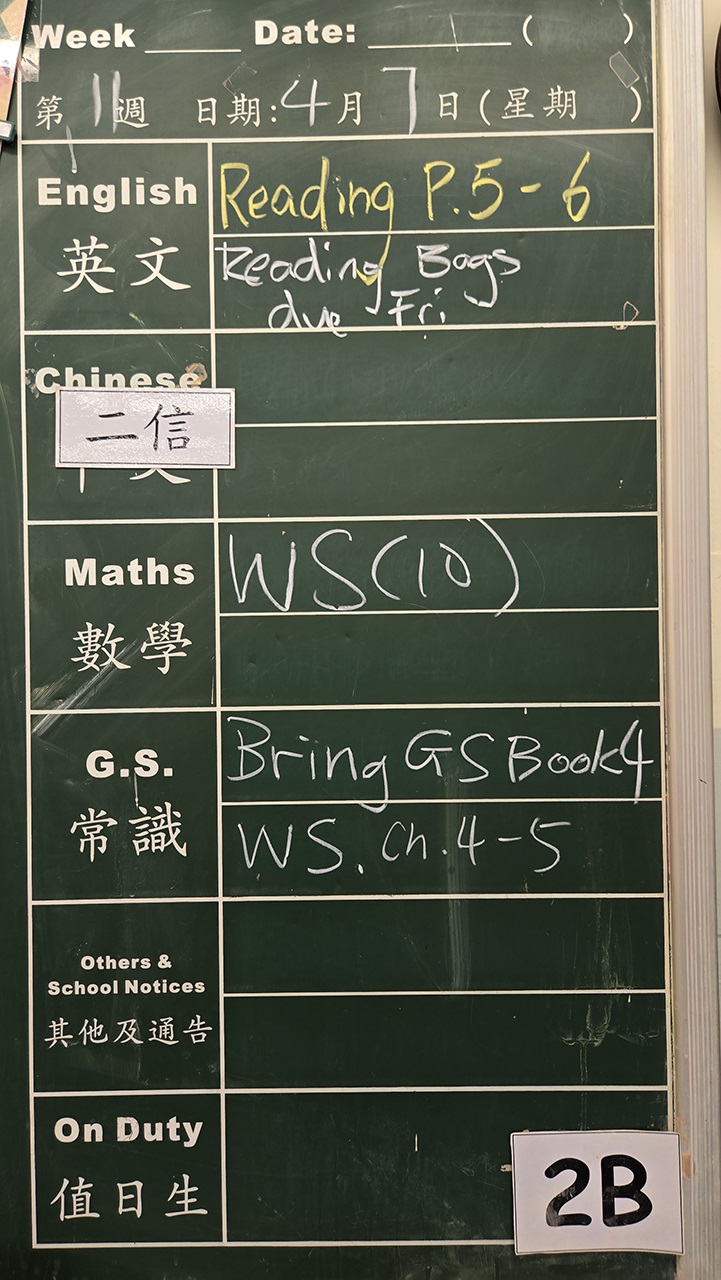 Week ____ Date: ______ ( )
第 11 週 日期: 4 月 7 日 (星期 )
English
英文
Reading P.5-6
Reading Bags
due Fri.
Chinese
二信
Maths
數學
WS(10)
G.S.
常識
Bring GS Book 4
WS. Ch. 4-5
Others &
School Notices
其他及通告
On Duty
值日生
2B